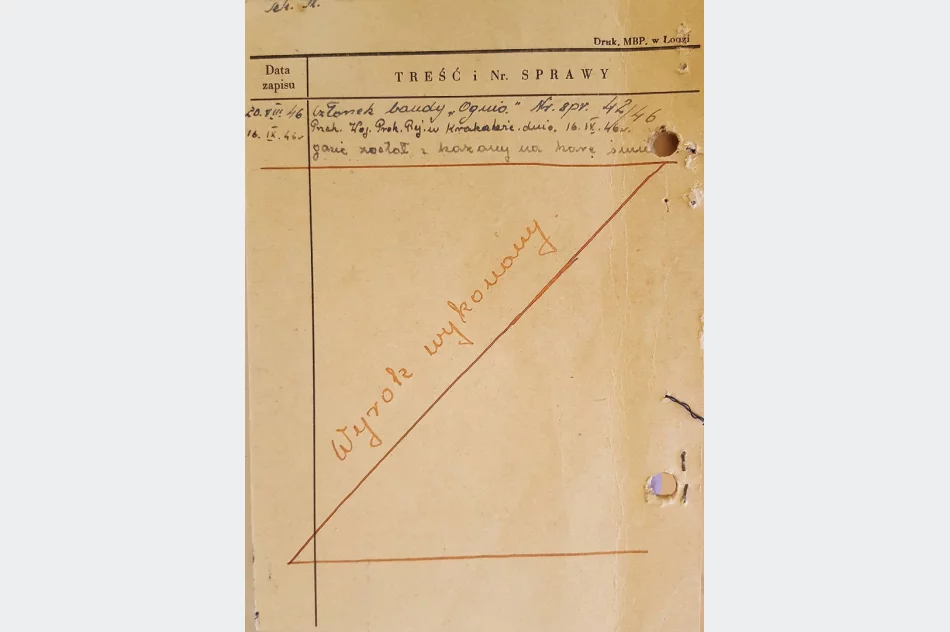 Druk. MBP. w Łodzi
Data zapisu
TREŚĆ i Nr. SPRAWY
20.VIII.46 członek bandy „Ognia" Nr. spr. 42/46
16.IX.46r Prok. Woj. Prok. Rej. w Krakowie dnia, 16.IX.46r.
został kazany na karę
Wyrok wykonany